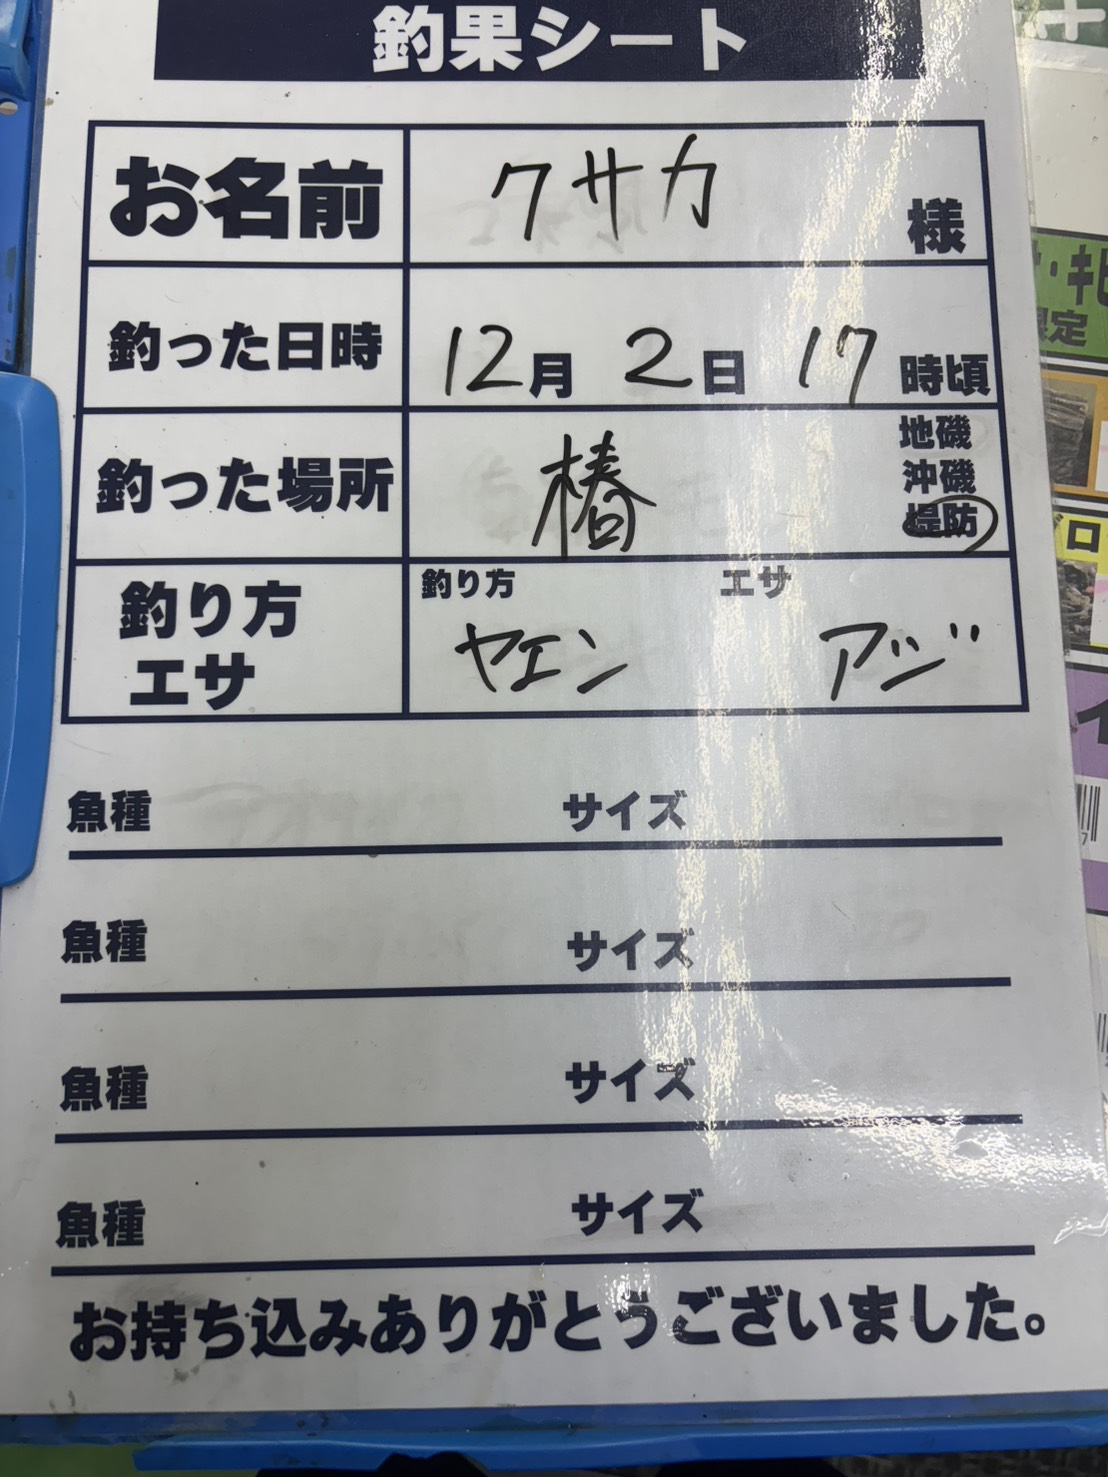 釣果シート
お名前 クサカ 様
釣った日時 12月 2日 17時頃
釣った場所 椿 地磯
沖磯
堤防
釣り方
エサ
釣り方 ヤエン
エサ アジ
魚種 サイズ
魚種 サイズ
魚種 サイズ
魚種 サイズ
お持ち込みありがとうございました。